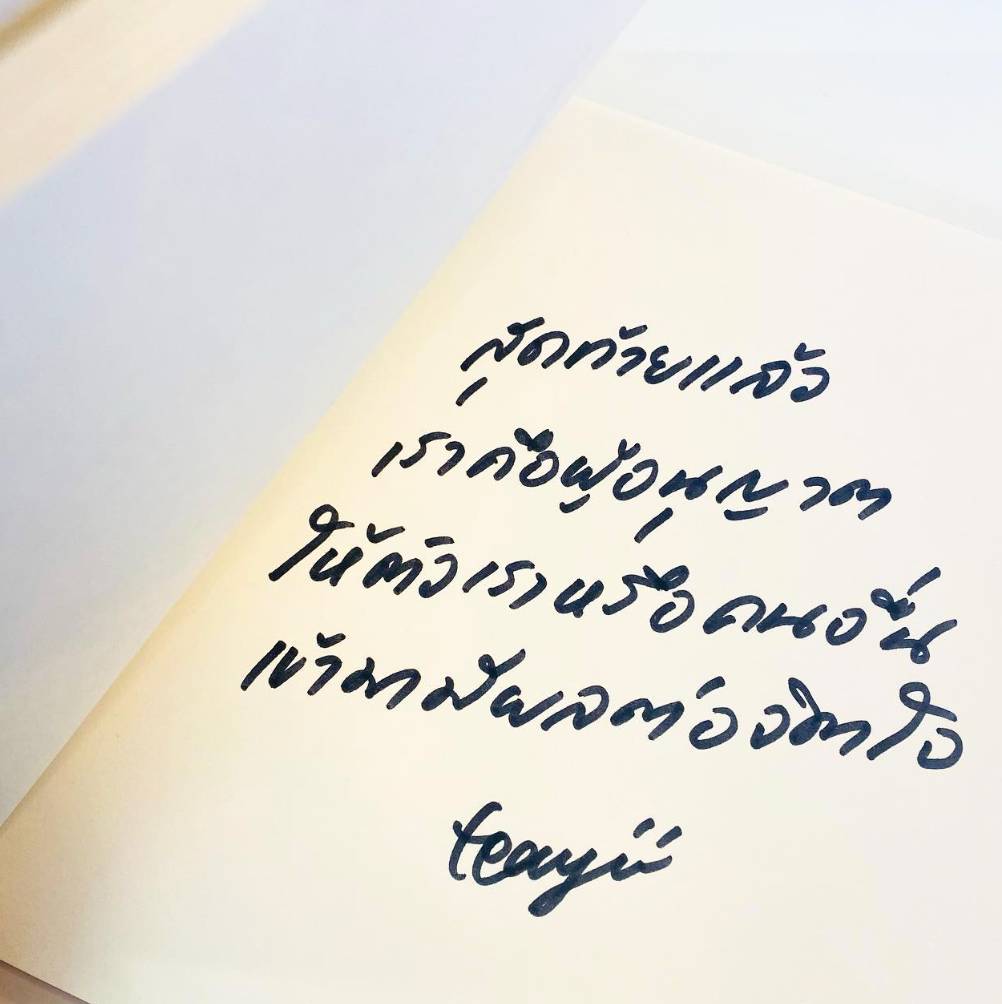 สุดท้ายแล้ว
เราคือผู้อนุญาต
ให้ตัวเราหรือคนอื่น
เข้ามามีผลต่อจิตใจ
teayii